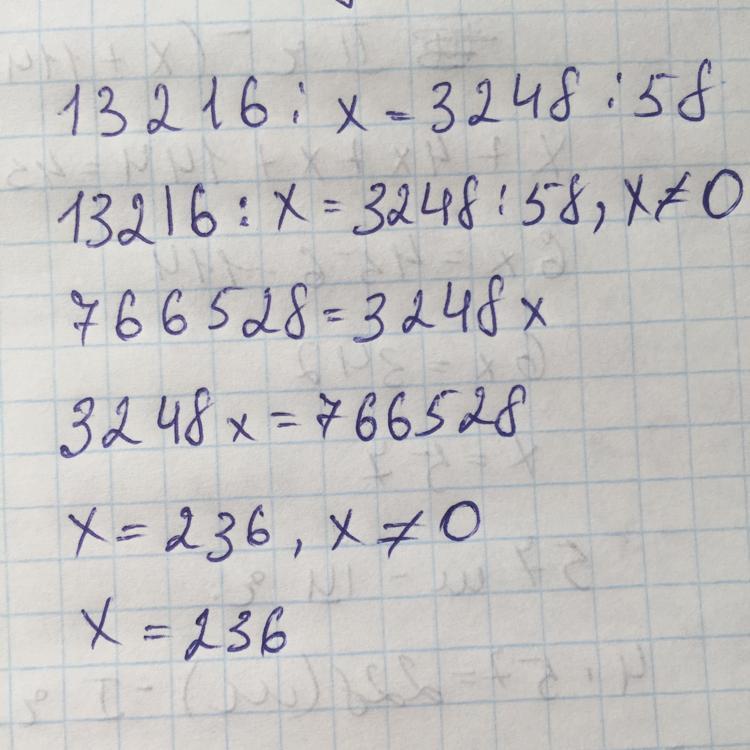 13216 : x = 3248 : 58
13216 : x = 3248 : 58, x ≠ 0
766528 = 3248 x
3248 x = 766528
x = 236, x ≠ 0
x = 236